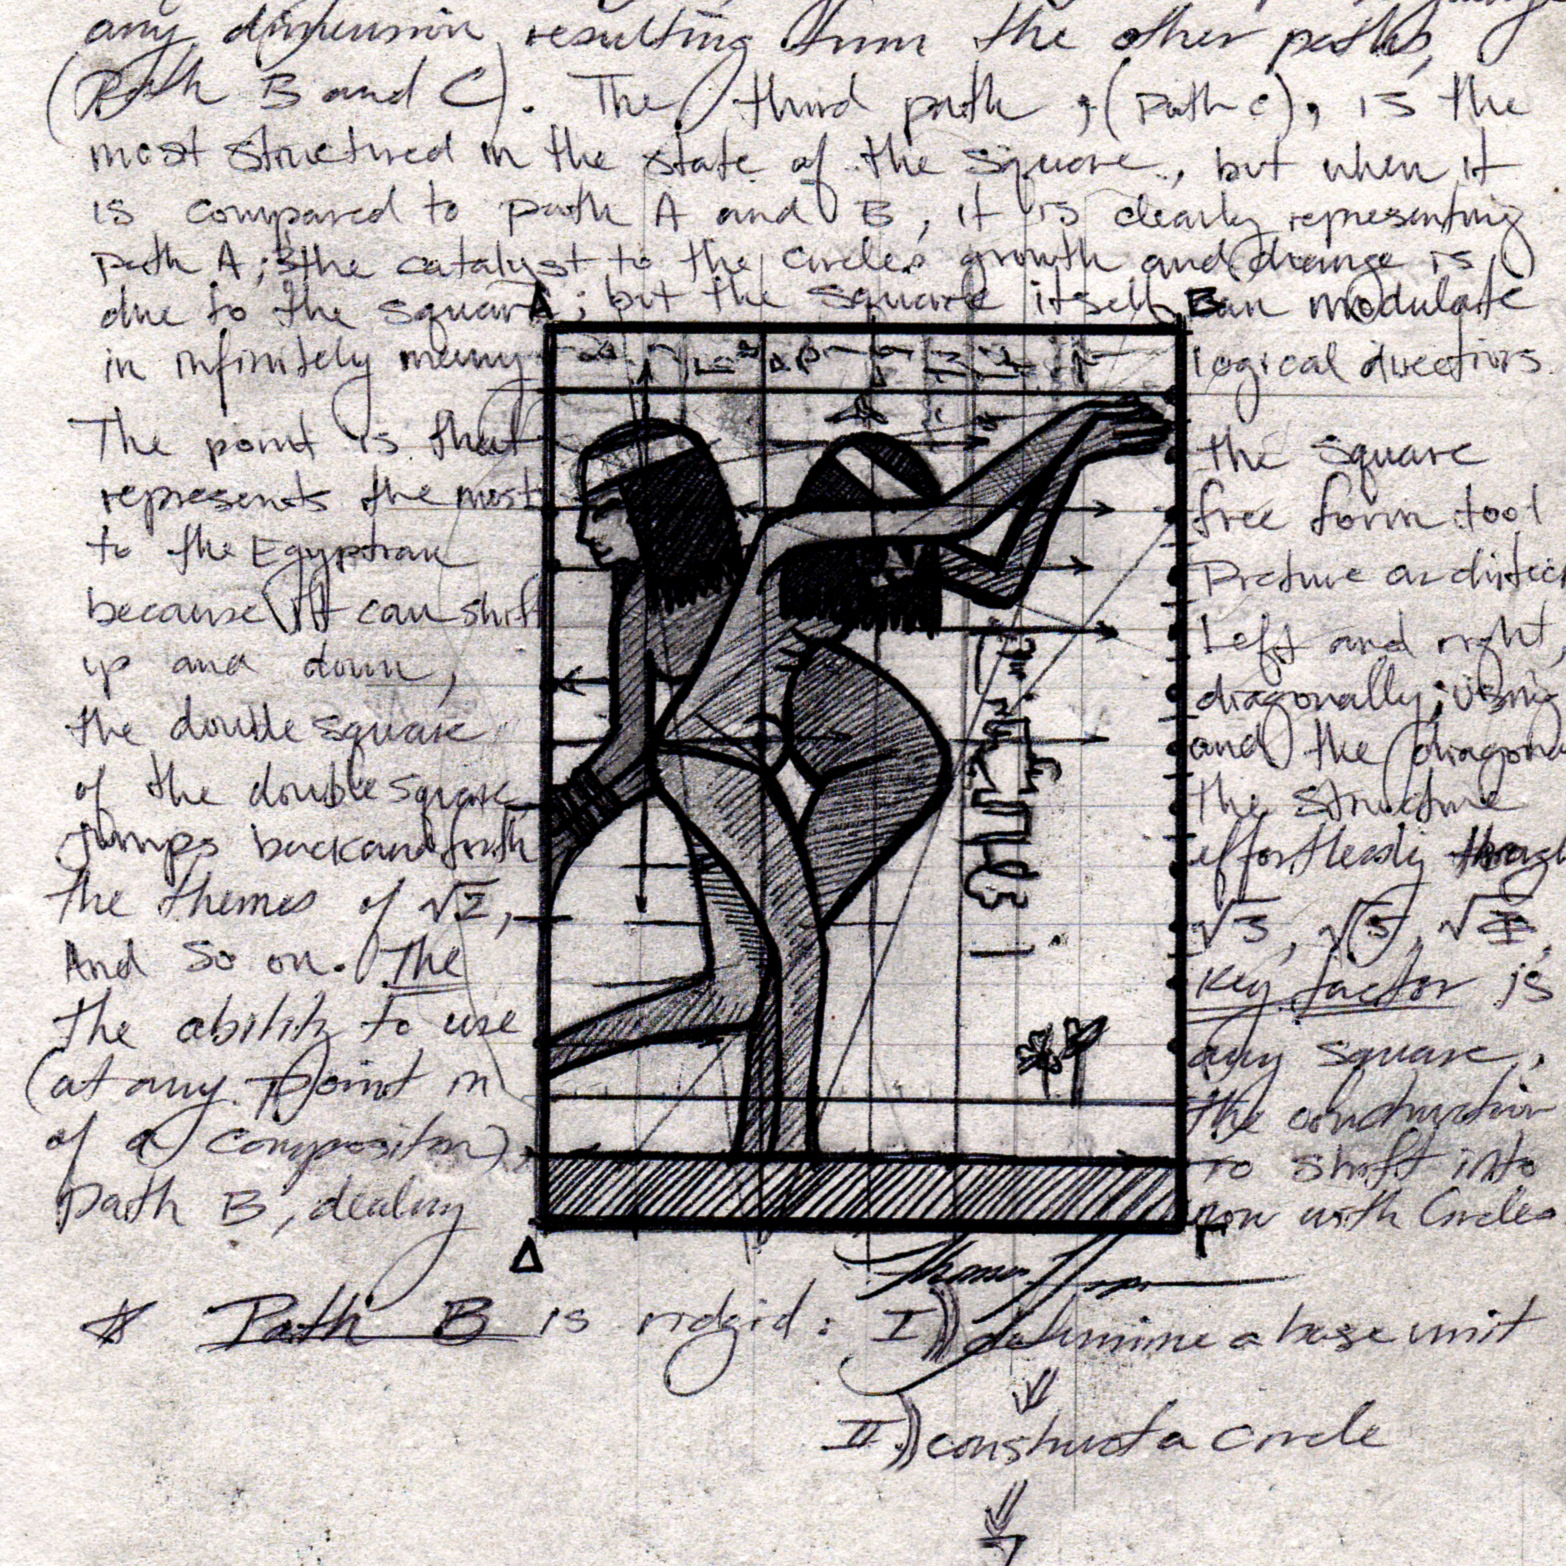 any dimension resulting from the other paths,
(Path B and C). The third path, (path c), is the
most structured in the state of the square, but when it
is compared to path A and B, it is clearly representing
path A; the catalyst to the circles growth and change is
due to the square; but the square itself can modulate
A B
in infinitely many logical directions.
The point is that the square
represents the most free form tool
to the Egyptian Picture architect
because it can shift Left and right,
up and down, diagonally; using
the double square and the diagonal
of the double square, the structure
jumps back and forth effortlessly through
the themes of √2, √3, √5,
And so on. The Key factor is
the ability to use any square,
(at any point in the construction
of a composition) to shift into
Path B, dealing now with Circles
Δ Γ
Path B is ridgid: I) determine a base unit
II) construct a circle